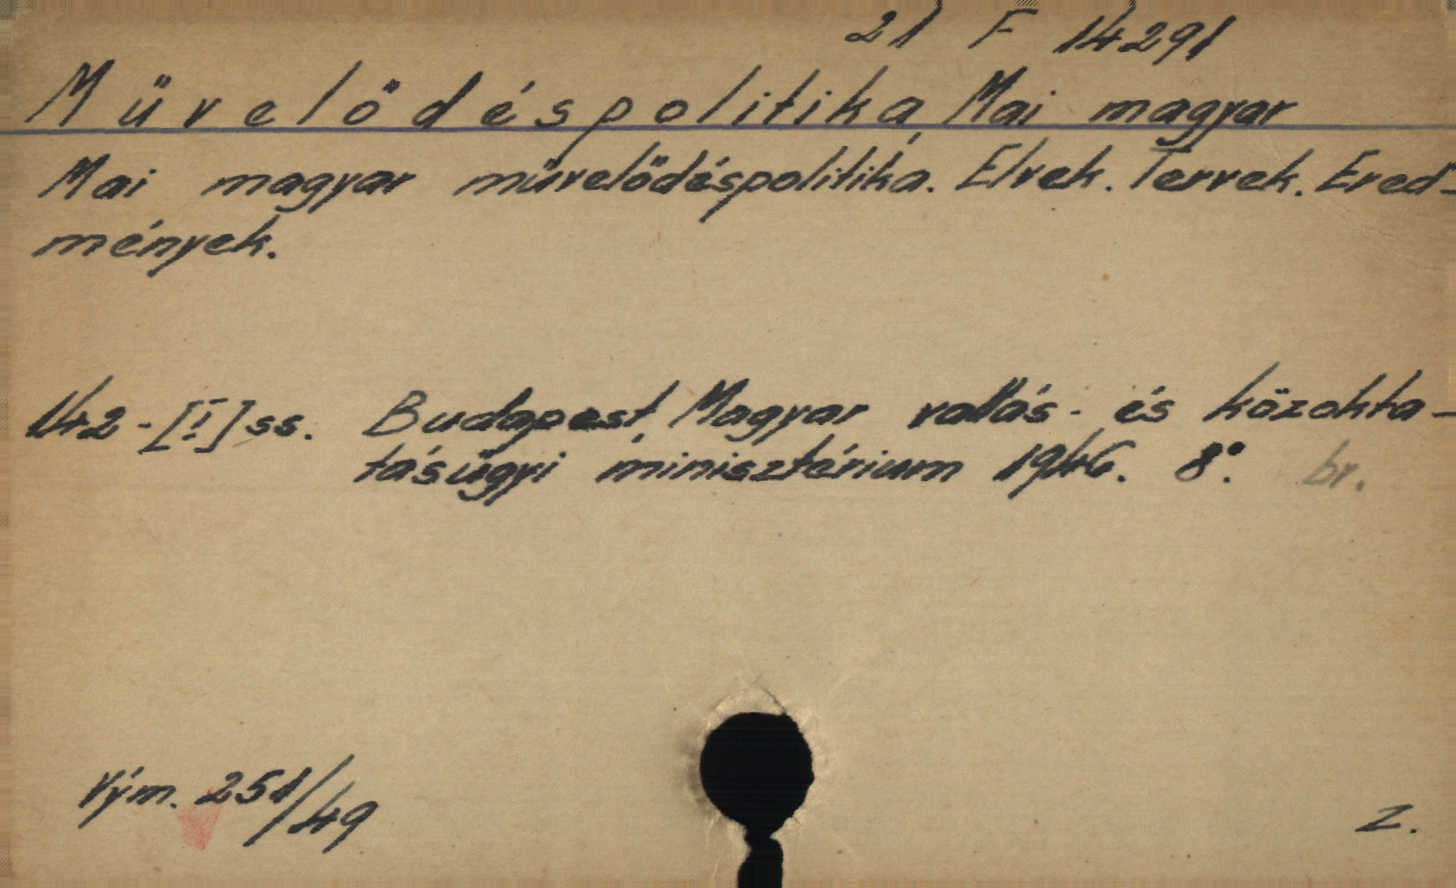 21 F 14291
Művelődéspolitika, Mai magyar
Mai magyar művelődéspolitika. Elvek. Tervek. Ered-
mények.
142-[!]ss. Budapest, Magyar vallás- és közokta-
tásügyi minisztérium 1946. 8°. br.
Vým. 251/49
Z.